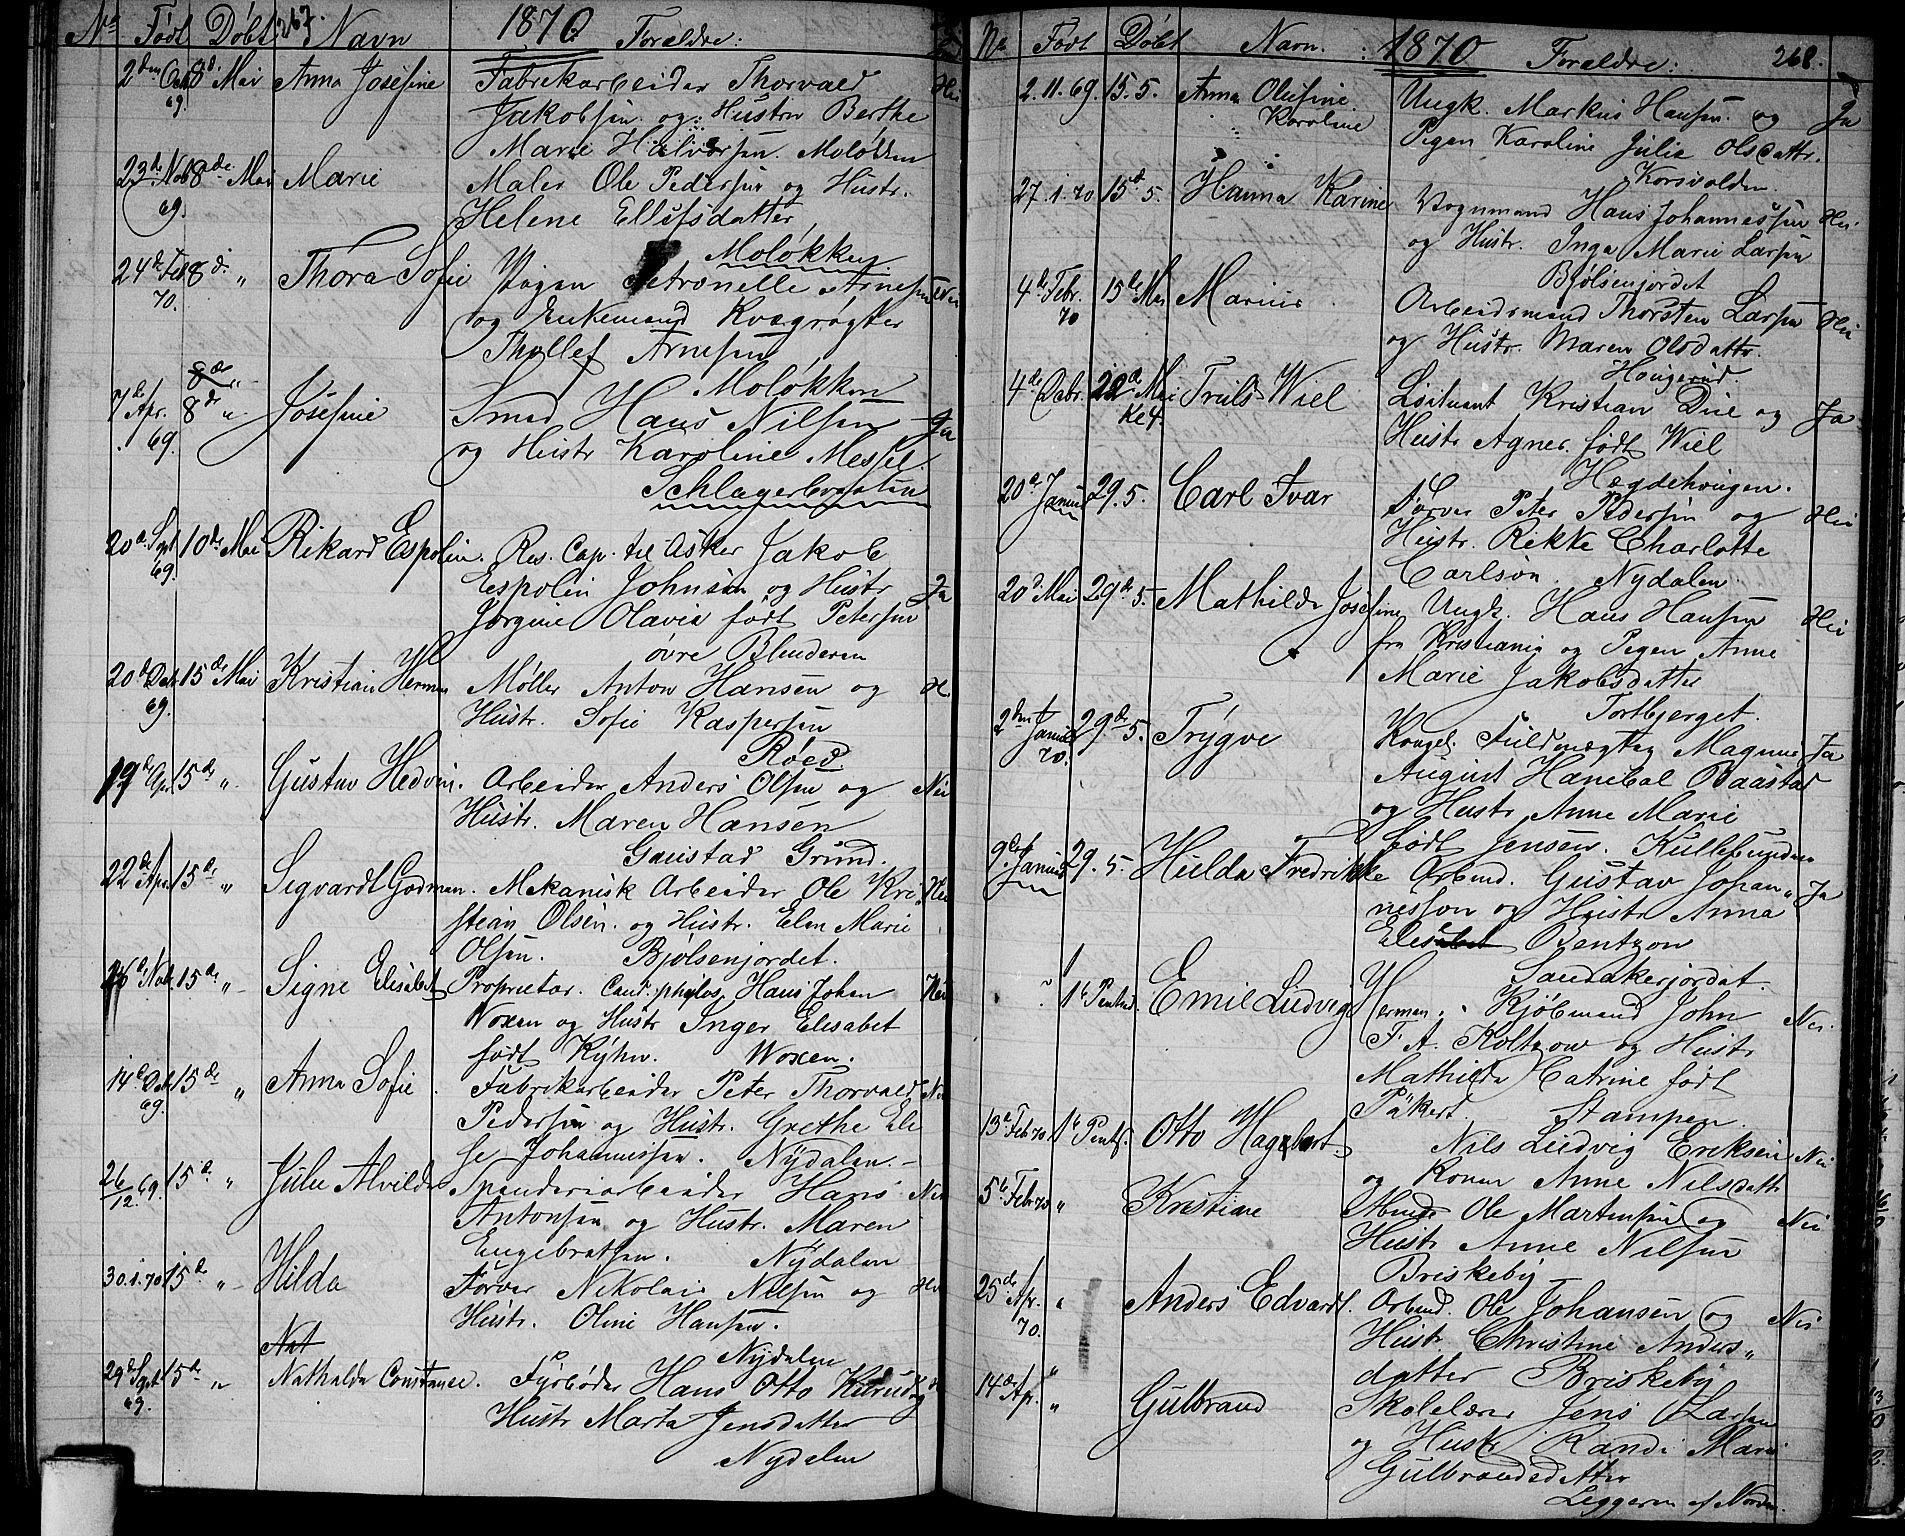 No Født Døbt 267. Navn 1870 Forældre:
2den Octb 69. 8de Mai Anna Josefine Fabrikarbeider Thorvald
Jakobsen og Hustru Berthe
Marie Halvorsen. Moløkken
23de Nov 69. 8de Mai Marie Maler Ole Pedersen og Hustr.
Helene Ellefsdatter
Moløkken
24de Feb 70. 8d. " Thora Sofie Pigen Petronelle Arnesen Nei
og Enkemand Kvægrøgter
Thollef Arnesen
Moløkken
7de Apr. 69. 8de " Josefine Smed Hans Nilsen Ja
og Hustr Karoline Messel.
20d Sept 69. 10de Mai Rikard Espolin. Res. Cap. til Asker Jakob
Espolin Johnsen og Hustr Ja
Jørgine Olavia født Petersen
øvre Blinderen
20d Octb 69. 15de Mai Kristian Herman Møller Anton Hansen og
Hustr. Sofie Kaspersen
Røed.
19de Apr 15de " Gustav Hedvin. Arbeider Anders Olsen og Nei
Hustr. Maren Hansen
Gaustad Grund.
22de Apr. 15de " Sigvardt Godman. Mekanisk Arbeider Ole Kri-
stian Olsen. og Hustr. Elen Marie
Olsen. Bjølsenjordet.
Nov. 15de " Signe Elisabet Proprietær. Cand. philos. Hans Johan Nei
Woxen og Hustr Inger Elisabet
født Kyhn. Woxen.
14de Oct. 69. 15de " Anna Sofie. Fabrikarbeider Peter Thorvald Nei
Pedersen og Hustr. Grethe Eli
se Johannissen. Nydalen.
26/12 69. 15de " Julie Alvilde Spinderiarbeider Hans Nei
Antonsen og Hustr. Maren
Engebretsen. Nydalen
30.1.70 15de " Hilda Farver Nikolai Nilsen og Nei
Hustr. Oline Hansen.
Nydalen
Nat
29d Sept 69. 15de " Nathalda Constanse. Fyrbøder Hans Otto
Hustr Marta Jensdatter
Nydalen
No Født Døbt Navn. 1870 Forældre: 268.
2.11.69. 15.5. Anna Olufine Karoline Ungk. Markus Hansen og Ja
Pigen Karoline Julie Olsdattr.
Korsvolden.
27.1.70 15d 5. Hanna Karine Vognmand Hans Johannessen Nei
og Hustr. Inga Marie Larsen
Bjølsenjordet
4de Febr. 70 15de Mai Marius Arbeidsmand Thorsten Larsen Nei
og Hustr. Maren Olsdattr.
Haugerud.
4de Octbr. 22de Mai Ke 4. Truls Wiel Løitnant Kristian Due og Ja
Hustr Agnes født Wiel
Hægdehougen.
20d Januar 29.5. Carl Ivar Farver Peter Pedersen og Nei
Hustr. Rikke Charlotte
Carlson. Nydalen.
20d Mai 29de 5. Mathilde Josefine Ungk. Hans Hansen Nei
fra Kristiania og Pigen Anne
Marie Jakobsdatter
Tortbjerget.
2den Januar 70. 29de 5. Trygve Kongel. Fuldmægtig Magnus Ja
August Hanibal Baastad
og Hustr Anne Marie
født Jensen. Kullebunden
9de Januar 29.5. Hulda Fredrikke Arbmd. Gustav Johan- Ja
nesson og Hustr Anna
Elisabet Bentzon
Sandakerjordet.
1te Pintsd Emil Ludvig Herman. Kjøbmand John Nei.
F. A. Koltzow og Hustr
Mathilda Catrine født
Päkert. Stampen.
13de Feb 70. 1te Pintsd. Otto Hagbart. Nils Ludvig Eriksen Nei
og Konen Anne Nilsdattr
5te Febr 70 " Kristiane Arbmd. Ole Martinsen og Nei
Hustr Anne Nilsen
Briskeby
25de Apr. 70. " Anders Edvardt. Arbmd. Ole Johansen og Nei
Hustr Christine Anders-
datter Briskeby
14de Apr. " Gulbrand Skolelærer Jens Larsen
og Hustr Randi Marie
Gulbrandsdatter